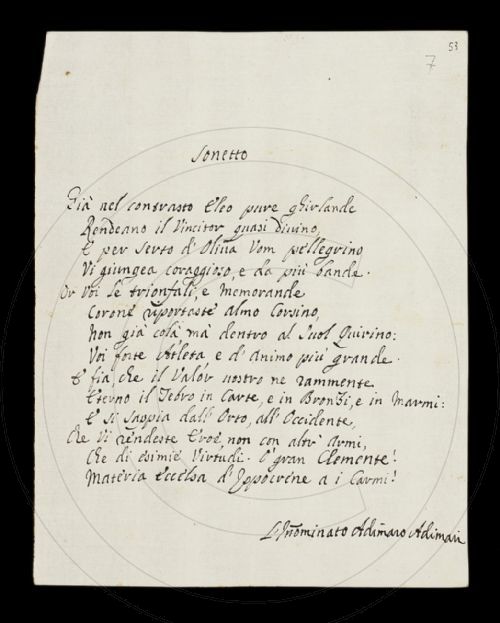 53
7
Sonetto
Già nel contrasto Eleo pure ghirlande
Rendeano il Vincitor quasi divino,
E per Serto d' Oliva Vom pellegrino
Vi giungea coraggioso, e da più bande.
Or Voi le trionfali, e memorande
Corone riportaste almo Corsino,
Non già colà mà dentro al Suol Quirino:
Voi forte Atleta e d' animo più grande.
E fia, che il Valor vostro ne rammente
Eterno il Tebro in Carte, e in Bronzi, e in Marmi:
E si Sappia dall' Orto, all' Occidente,
Che Vi rendeste Eroe, non con altr' Armi,
Che di esimie Virtudi. O' gran Clemente!
Materia eccelsa d' Ippocrene a i Carmi!
L'Innominato Adimaro Adimari